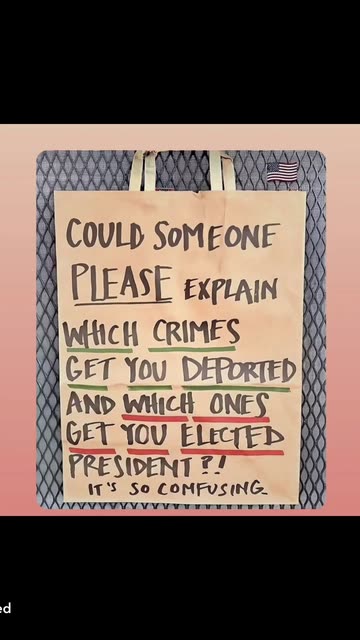 COULD SOMEONE
PLEASE EXPLAIN
WHICH CRIMES
GET YOU DEPORTED
AND WHICH ONES
GET YOU ELECTED
PRESIDENT?!
IT'S SO COMFUSING.
ed